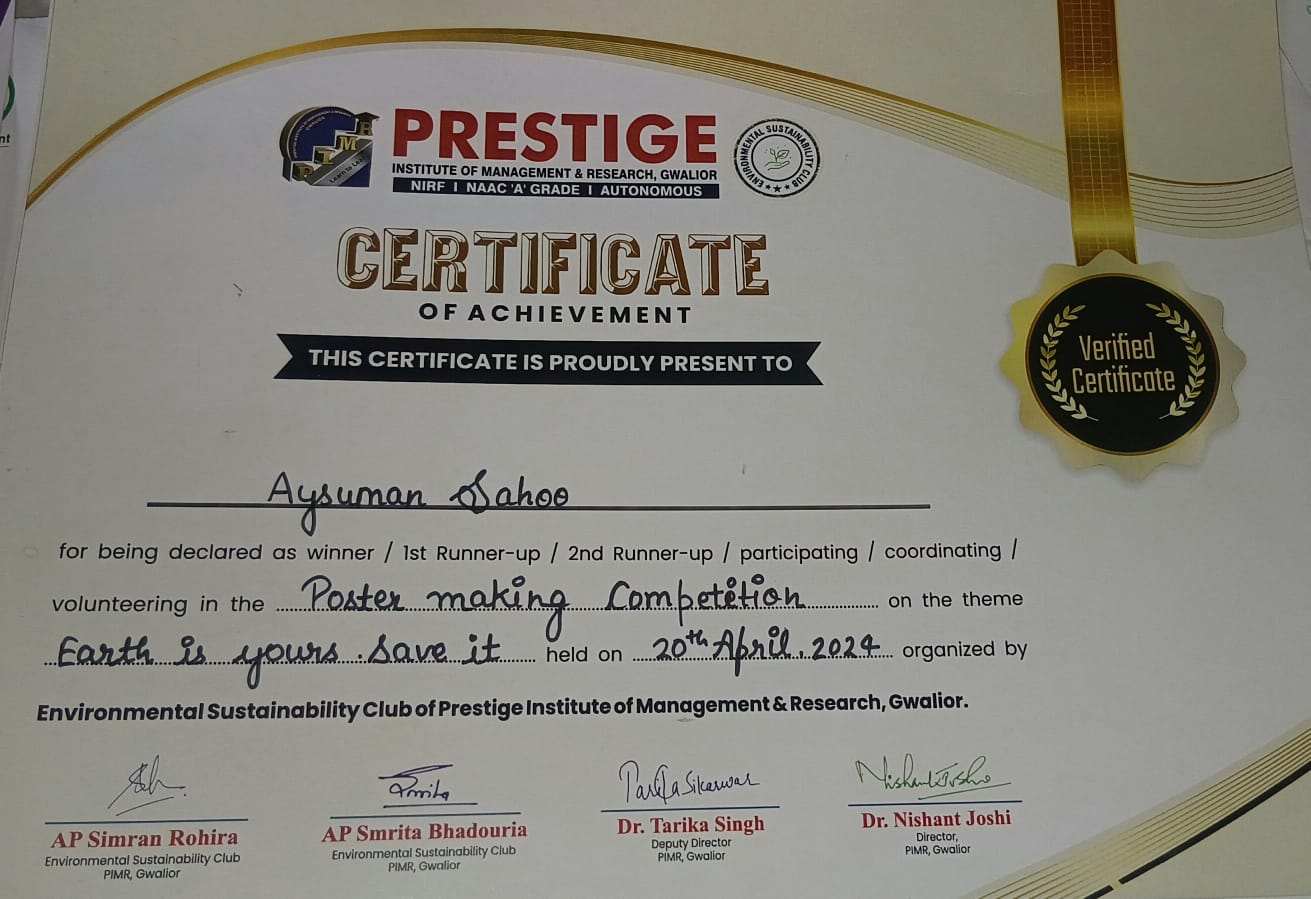 PRESTIGE
INSTITUTE OF MANAGEMENT & RESEARCH, GWALIOR
NIRF I NAAC 'A' GRADE I AUTONOMOUS
PIMR
Learn to Lead
ENVIRONMENTAL SUSTAINABILITY CLUB
CERTIFICATE
OF ACHIEVEMENT
THIS CERTIFICATE IS PROUDLY PRESENT TO
Verified
Certificate
Aysuman Sahoo
for being declared as winner / 1st Runner-up / 2nd Runner-up / participating / coordinating /
volunteering in the Poster making Competition on the theme
Earth is yours. Save it held on 20th April, 2024 organized by
Environmental Sustainability Club of Prestige Institute of Management & Research, Gwalior.
AP Simran Rohira
Environmental Sustainability Club
PIMR, Gwalior
AP Smrita Bhadouria
Environmental Sustainability Club
PIMR, Gwalior
Dr. Tarika Singh
Deputy Director
PIMR, Gwalior
Nishant Joshi
Dr. Nishant Joshi
Director,
PIMR, Gwalior